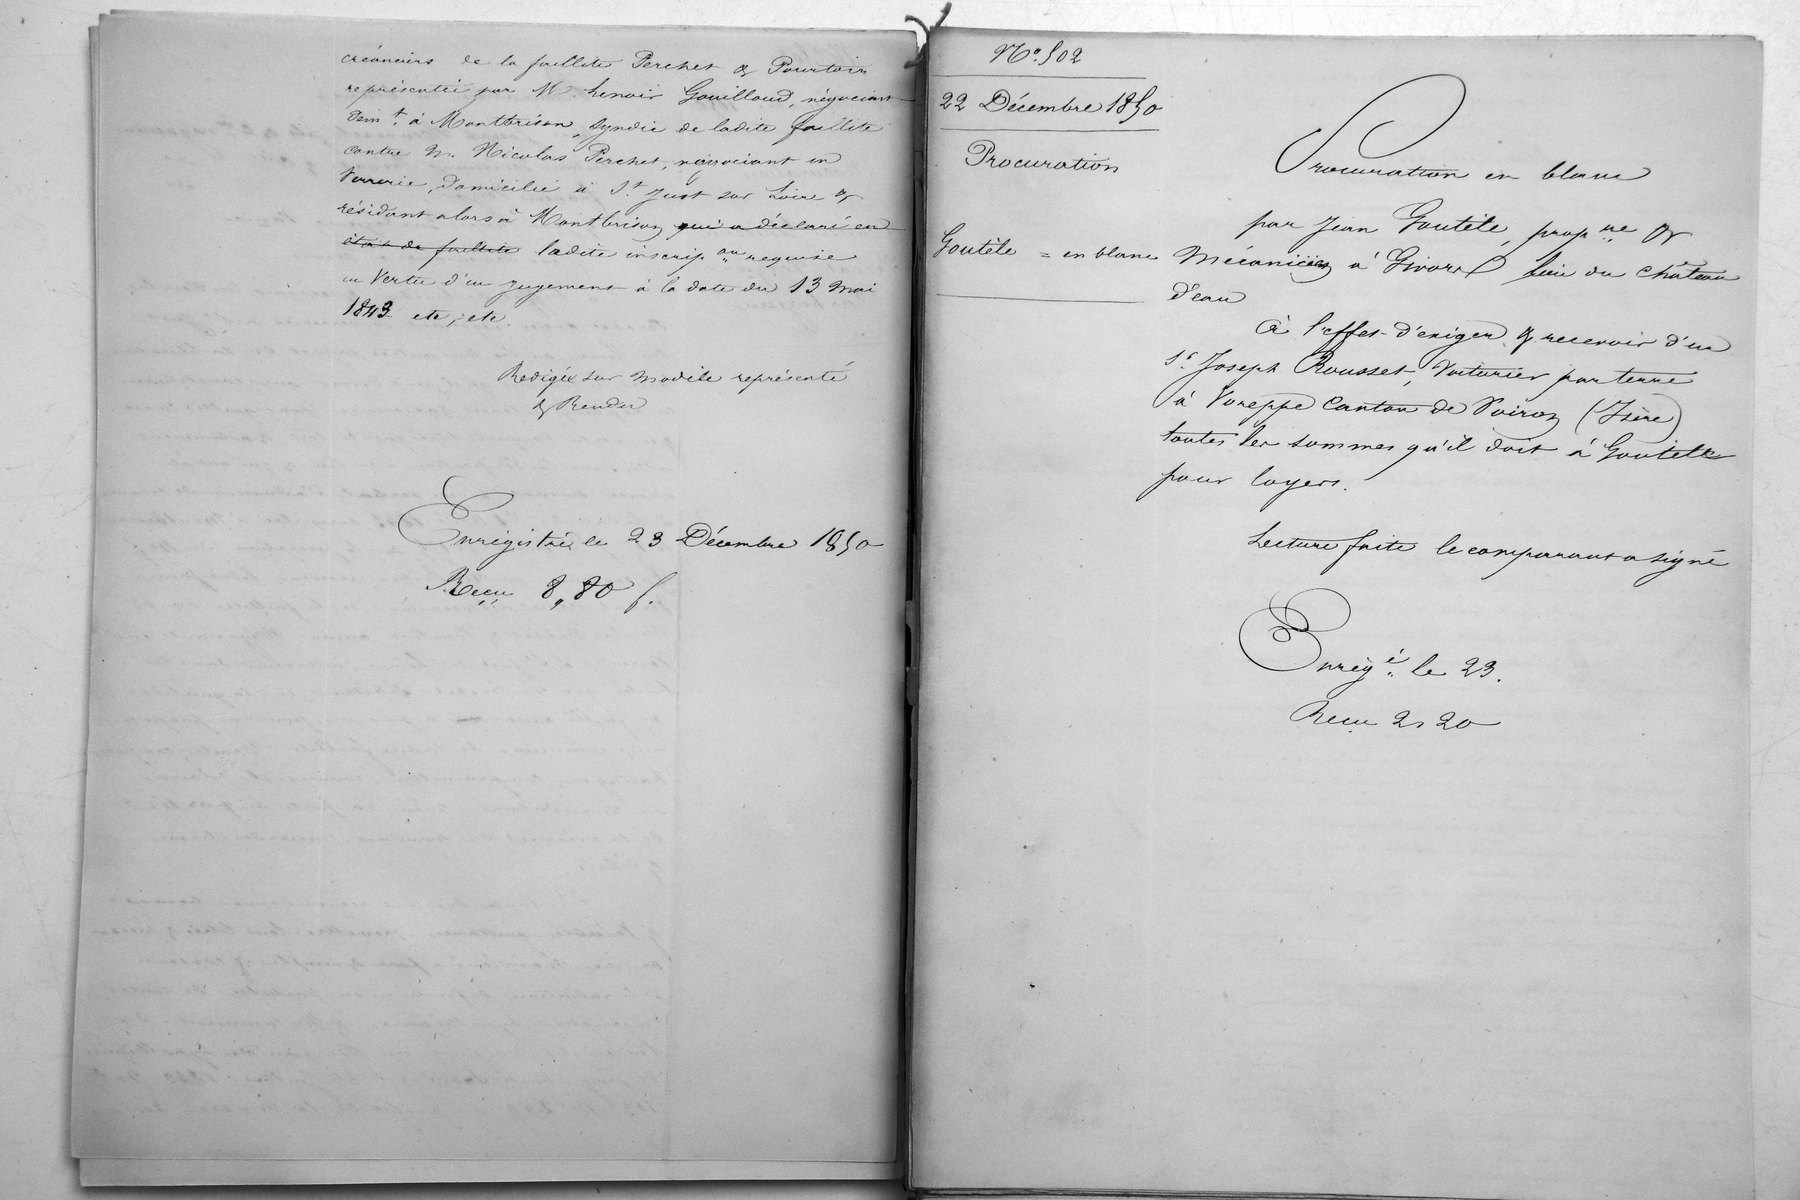 créanciers de la faillite Perchet & Pourtois
représentée par M. Lenoir Gouilloud, négociant
dem.t à Montbrison, syndic de ladite faillite
contre M. Nicolas Perchet, négociant en
verrerie, domicilié à St. Just sur Loire &
résidant alors à Montbrison qui a déclaré en
état de faillite ladite inscrip.on requise
en vertu d'un jugement à la date du 13 mai
1843 etc, etc.
Rédigée sur modèle représenté
& Rendu
Enregistré le 23 Décembre 1850
Reçu 8,80 f.
No. 502
22 Décembre 1850
Procuration
Goutèle = en blanc
Procuration en blanc
par Jean Goutèle, prop.re &
Mécanicien à Givors lieu du château
d'eau
à l'effet d'exiger & recevoir d'un
Sr. Joseph Rousset, voiturier par terre
à Voreppe canton de Voiron (Isère)
toutes les sommes qu'il doit à Goutèle
pour loyers.
Lecture faite le comparant a signé
Enreg.é le 23.
Reçu 2,20